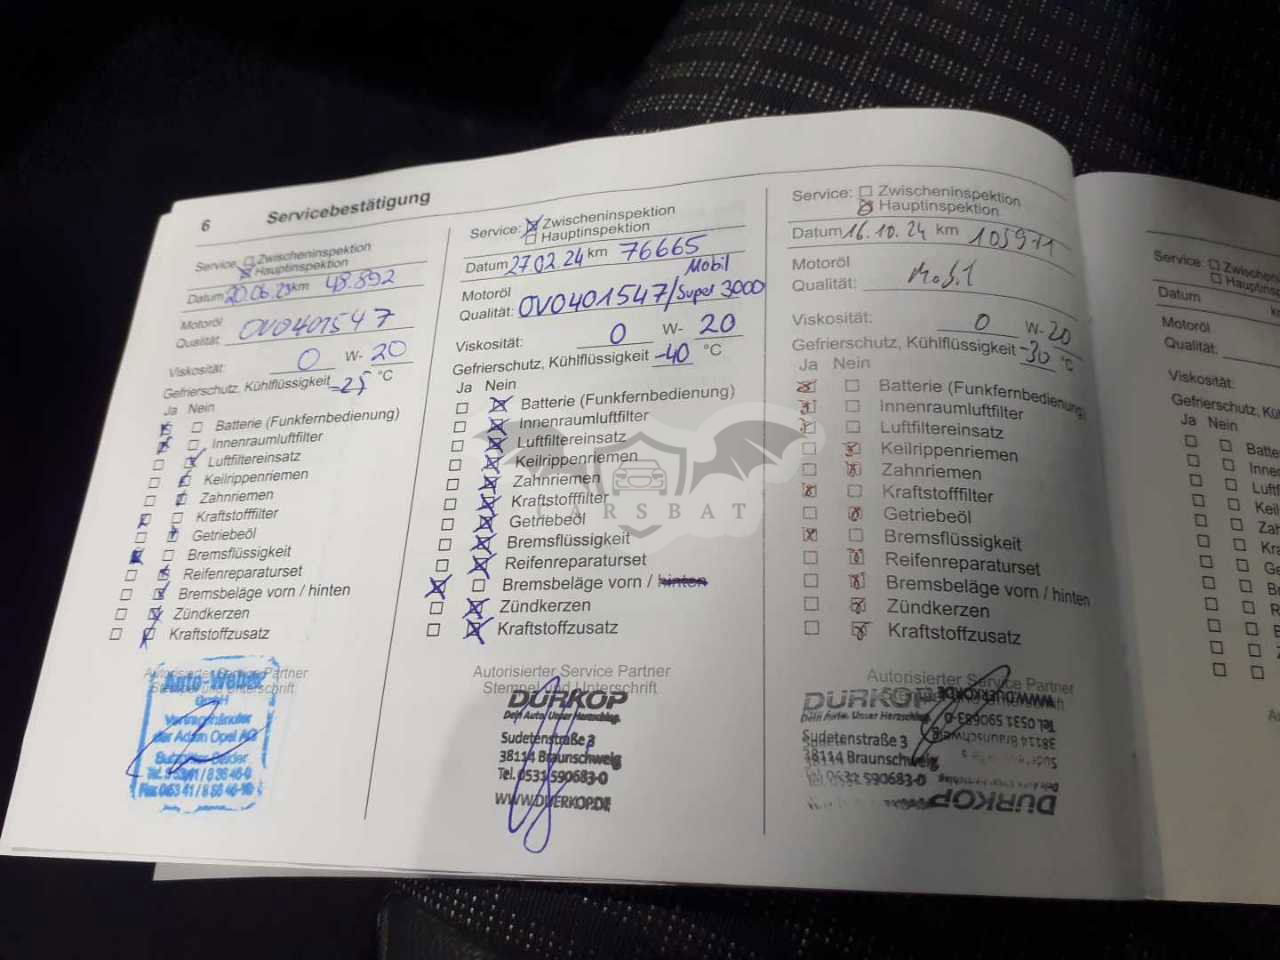 6 Servicebestätigung
Service: Zwischeninspektion
Hauptinspektion
Datum 20.06.23 km 48.892
Motoröl
Qualität: OVO401547
Viskosität: 0 W- 20
Gefrierschutz, Kühlflüssigkeit -25 °C
Ja Nein
Batterie (Funkfernbedienung)
Innenraumluftfilter
Luftfiltereinsatz
Keilrippenriemen
Zahnriemen
Kraftstofffilter
Getriebeöl
Bremsflüssigkeit
Reifenreparaturset
Bremsbeläge vorn / hinten
Zündkerzen
Kraftstoffzusatz
Autorisierter Service Partner
Stempel und Unterschrift
Auto-Weber
GmbH
Vertragshändler
der Adam Opel AG
Service: Zwischeninspektion
Hauptinspektion
Datum 27.02.24 km 76665
Motoröl Mobil
Qualität: OVO401547/Super 3000
Viskosität: 0 W- 20
Gefrierschutz, Kühlflüssigkeit -40 °C
Ja Nein
Batterie (Funkfernbedienung)
Innenraumluftfilter
Luftfiltereinsatz
Keilrippenriemen
Zahnriemen
Kraftstofffilter
Getriebeöl
Bremsflüssigkeit
Reifenreparaturset
Bremsbeläge vorn / hinten
Zündkerzen
Kraftstoffzusatz
Autorisierter Service Partner
Stempel und Unterschrift
DÜRKOP
Dein Auto. Unser Herzschlag.
Sudetenstraße 3
38114 Braunschweig
Tel. 0531 590683-0
WWW.DUERKOP.DE
Service: Zwischeninspektion
Hauptinspektion
Datum 16.10.24 km 105911
Motoröl
Qualität: Mobil
Viskosität: 0 W- 20
Gefrierschutz, Kühlflüssigkeit -30 °C
Ja Nein
Batterie (Funkfernbedienung)
Innenraumluftfilter
Luftfiltereinsatz
Keilrippenriemen
Zahnriemen
Kraftstofffilter
Getriebeöl
Bremsflüssigkeit
Reifenreparaturset
Bremsbeläge vorn / hinten
Zündkerzen
Kraftstoffzusatz
Autorisierter Service Partner
DÜRKOP
Dein Auto. Unser Herzschlag.
Sudetenstraße 3
38114 Braunschweig
Tel. 0531 590683-0
WWW.DUERKOP.DE
Tel. 0531 590683-0
38114 Braunschweig
DÜRKOP
Service:
Datum
Motoröl
Qualität:
Viskosität:
Ja Nein
CARSBAT